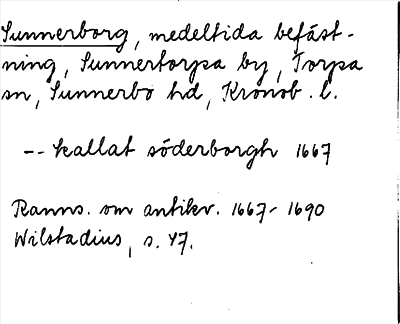 Sunnerborg, medeltida befäst-
ning, Sunnertorpa by, Torpa
sn, Sunnerbo hd, Kronob. l.
-- kallat söderborgh 1667
Ranns. om antikv. 1667-1690
Wilstadius, s. 47.